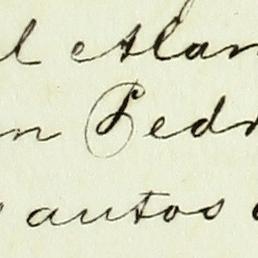 l Alar
n Pedr
autos